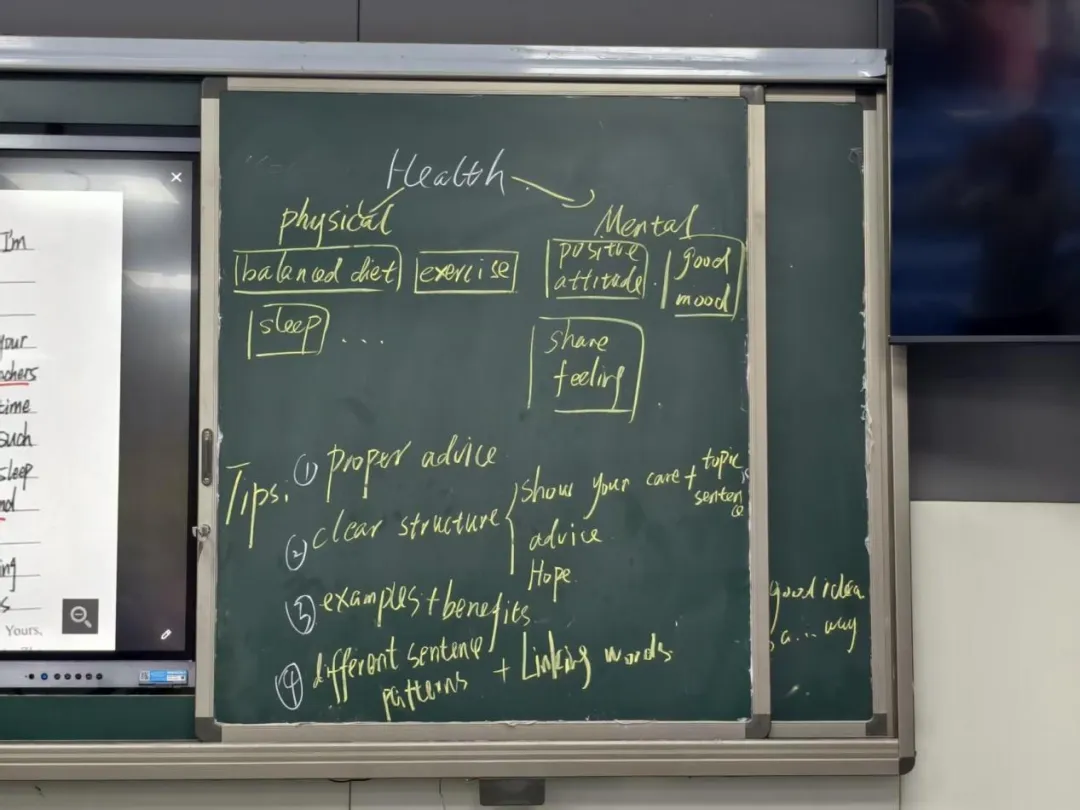 I'm
your
achers
time
such
sleep
ing
Yours,
Health
physical
Mental
balanced diet
exercise
positive
attitude
good
mood
sleep
...
share
feeling
Tips:
① proper advice
② clear structure
show your care + topic
sentence
advice
Hope
③ examples + benefits
④ different sentence
patterns
+ Linking words
good idea
a... way